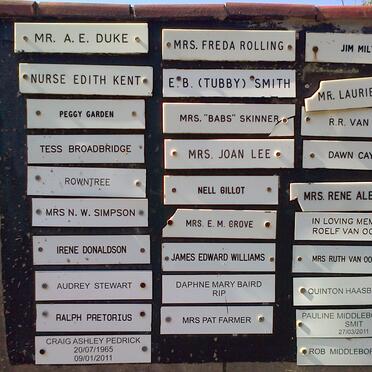 MR. A. E. DUKE
NURSE EDITH KENT
PEGGY GARDEN
TESS BROADBRIDGE
ROWNTREE
MRS N. W. SIMPSON
IRENE DONALDSON
AUDREY STEWART
RALPH PRETORIUS
CRAIG ASHLEY PEDRICK
20/07/1965
09/01/2011
MRS. FREDA ROLLING
E. B. (TUBBY) SMITH
MRS. "BABS" SKINNER
MRS. JOAN LEE
NELL GILLOT
MRS. E. M. GROVE
JAMES EDWARD WILLIAMS
DAPHNE MARY BAIRD
RIP
MRS PAT FARMER
JIM
MR. LAURIE
R.R. VAN
DAWN
MRS. RENE
IN LOVING
ROELF VAN
MRS RUTH VAN
QUINTON
PAULINE
SMIT
27/03/2011
ROB